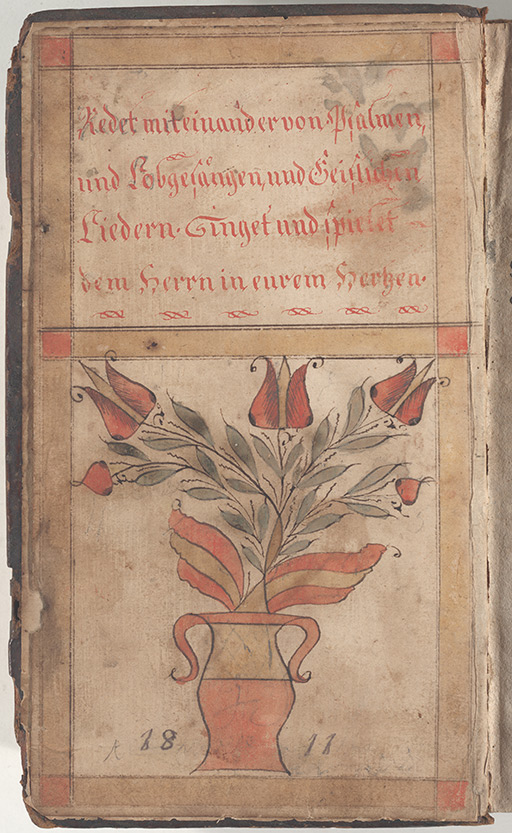 Redet miteinander von Psalmen,
und Lobgesängen, und Geistlichen
Liedern. Singet und spielet
dem Herrn in eurem Hertzen.
18 11